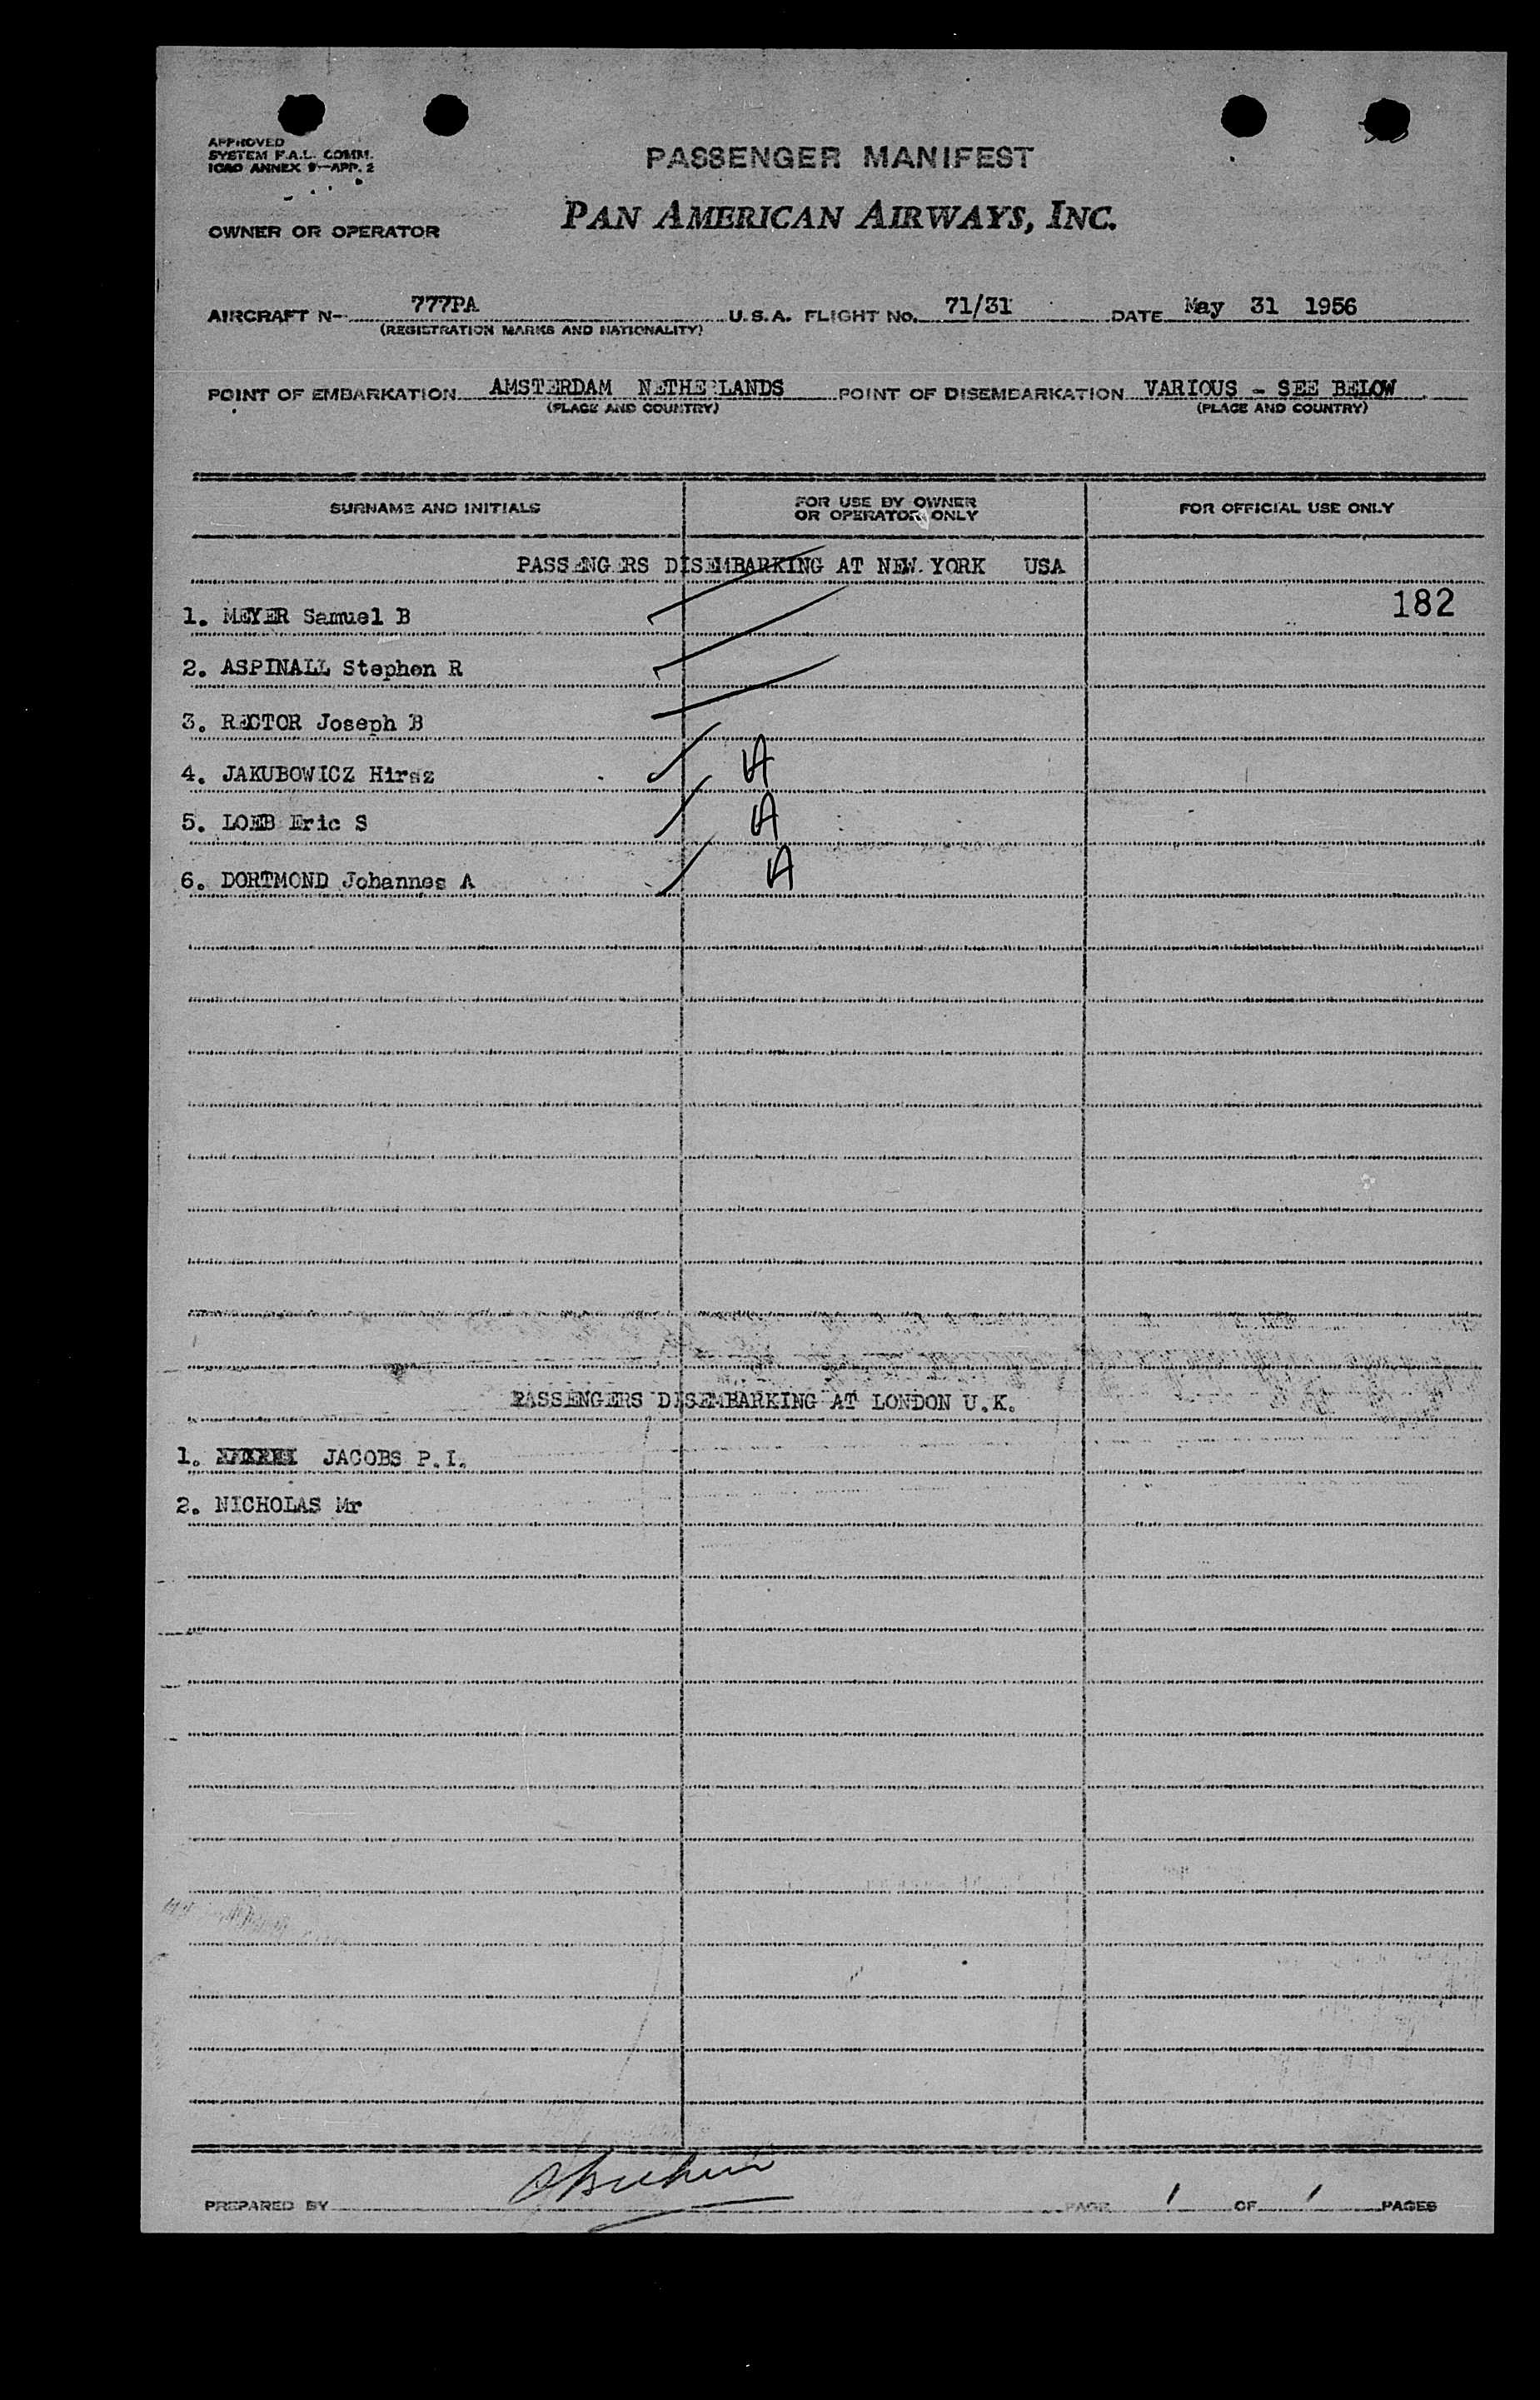 APPROVED
SYSTEM F.A.L. COMM.
ICAO ANNEX 9—APP. 2
PASSENGER MANIFEST
OWNER OR OPERATOR
PAN AMERICAN AIRWAYS, INC.
AIRCRAFT N- 777PA U.S.A. FLIGHT NO. 71/31 DATE May 31 1956
(REGISTRATION MARKS AND NATIONALITY)
POINT OF EMBARKATION AMSTERDAM NETHERLANDS POINT OF DISEMBARKATION VARIOUS - SEE BELOW
(PLACE AND COUNTRY) (PLACE AND COUNTRY)
SURNAME AND INITIALS FOR USE BY OWNER OR OPERATOR ONLY FOR OFFICIAL USE ONLY
PASSENGERS DISEMBARKING AT NEW YORK USA
182
1. MEYER Samuel B
2. ASPINALL Stephen R
3. RECTOR Joseph B
4. JAKUBOWICZ Hirsz A
5. LOEB Eric S A
6. DORTMOND Johannes A A
PASSENGERS DISEMBARKING AT LONDON U.K.
1. JACOBS P.I.
2. NICHOLAS Mr
PREPARED BY PAGE 1 OF 1 PAGES